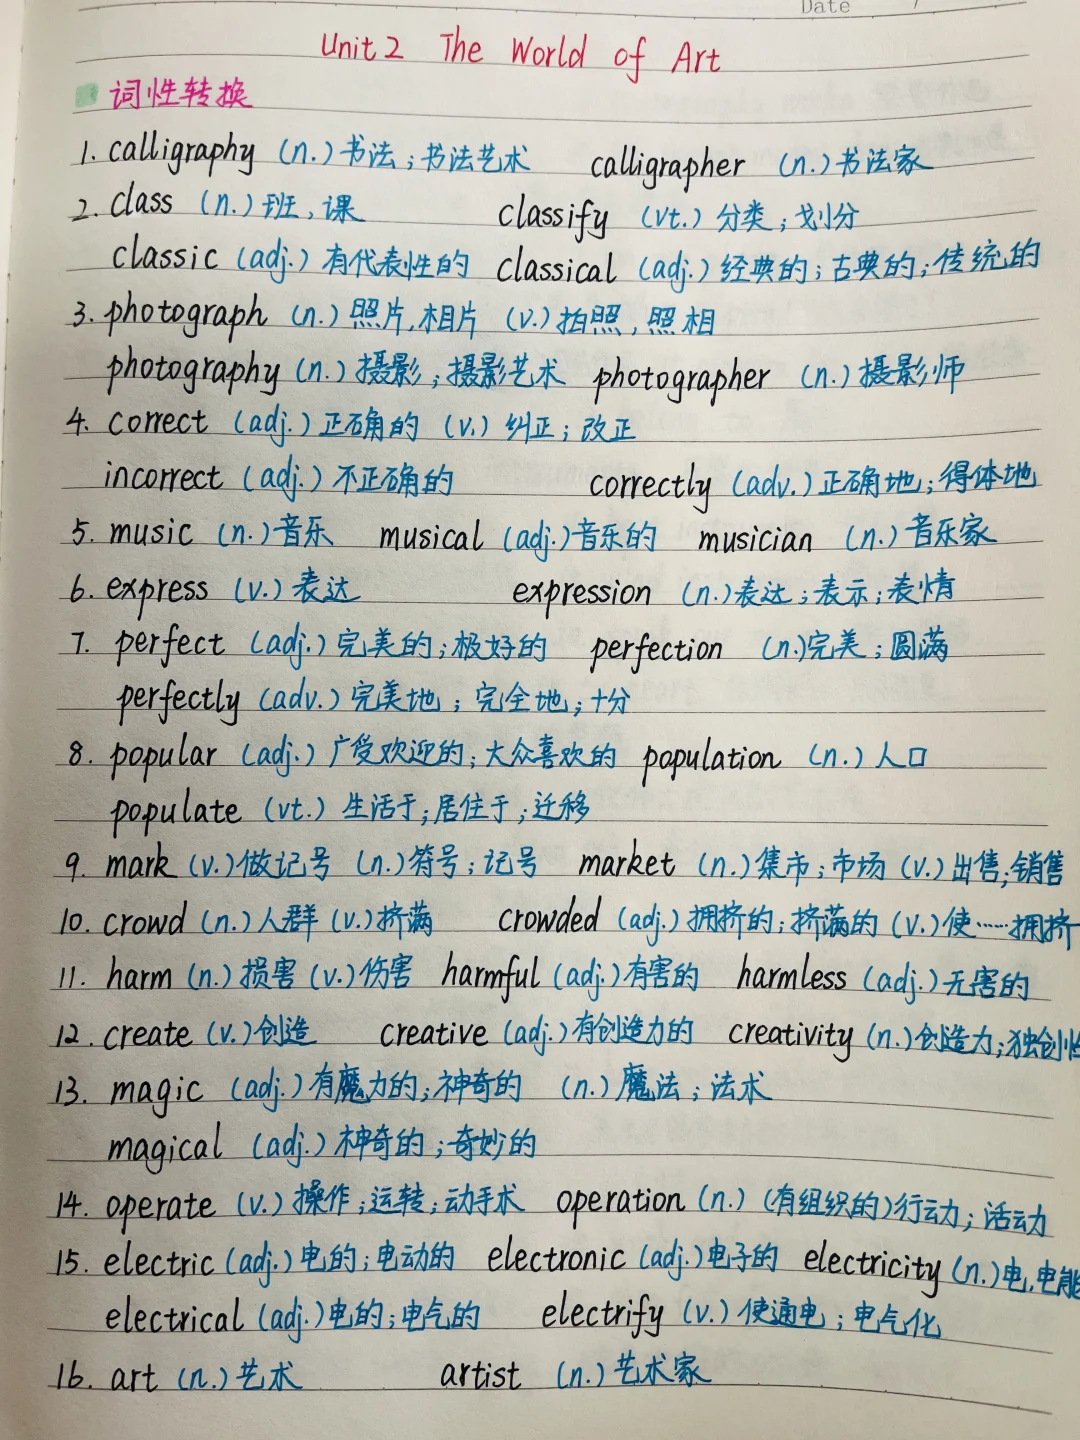 Date /
Unit 2 The World of Art
词性转换
1. calligraphy (n.) 书法；书法艺术 calligrapher (n.) 书法家
2. class (n.) 班，课 classify (vt.) 分类；划分
classic (adj.) 有代表性的 classical (adj.) 经典的；古典的；传统的
3. photograph (n.) 照片，相片 (v.) 拍照，照相
photography (n.) 摄影；摄影艺术 photographer (n.) 摄影师
4. correct (adj.) 正确的 (v.) 纠正；改正
incorrect (adj.) 不正确的 correctly (adv.) 正确地；得体地
5. music (n.) 音乐 musical (adj.) 音乐的 musician (n.) 音乐家
6. express (v.) 表达 expression (n.) 表达；表示；表情
7. perfect (adj.) 完美的；极好的 perfection (n.) 完美；圆满
perfectly (adv.) 完美地；完全地；十分
8. popular (adj.) 广受欢迎的；大众喜欢的 population (n.) 人口
populate (vt.) 生活于；居住于；迁移
9. mark (v.) 做记号 (n.) 符号；记号 market (n.) 集市；市场 (v.) 出售；销售
10. crowd (n.) 人群 (v.) 挤满 crowded (adj.) 拥挤的；挤满的 (v.) 使……拥挤
11. harm (n.) 损害 (v.) 伤害 harmful (adj.) 有害的 harmless (adj.) 无害的
12. create (v.) 创造 creative (adj.) 有创造力的 creativity (n.) 创造力；独创性
13. magic (adj.) 有魔力的；神奇的 (n.) 魔法；法术
magical (adj.) 神奇的；奇妙的
14. operate (v.) 操作；运转；动手术 operation (n.) (有组织的)行动；活动
15. electric (adj.) 电的；电动的 electronic (adj.) 电子的 electricity (n.) 电，电能
electrical (adj.) 电的；电气的 electrify (v.) 使通电；电气化
16. art (n.) 艺术 artist (n.) 艺术家